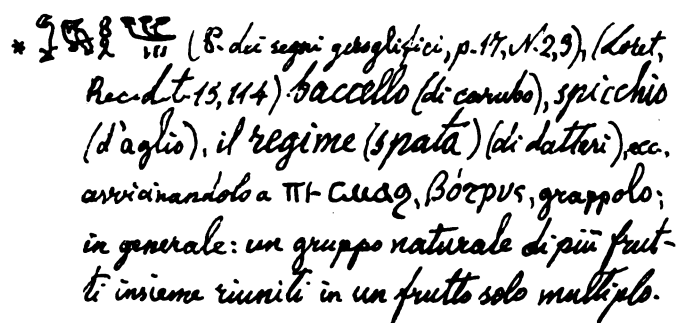 * (P. dei segni geroglifici, p. 17, N. 2, 9), (Loret,
Rec. d. t. 15, 114) baccello (di carubo), spicchio
(d'aglio), il regime (spata) (di datteri), ecc.
avvicinandolo a ⲡⲓ-ⲥⲙⲁϩ, βότρυς, grappolo;
in generale: un gruppo naturale di più frut-
ti insieme riuniti in un frutto solo multiplo.